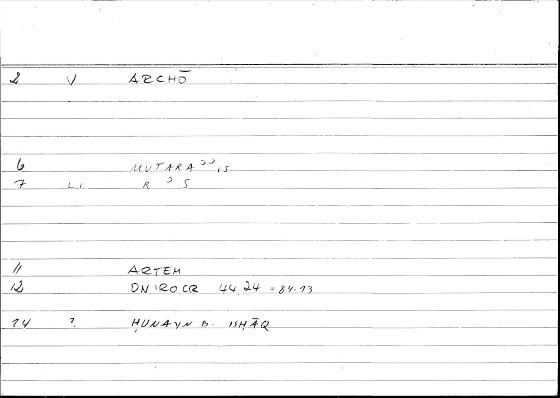 2 V ARCHŌ
6 MUTARAʾʾIS
7 LI RʾS
11 ARTEM
12 ONIROCR 44,24 = 84.13
14 ? ḤUNAYN B. ISḤĀQ